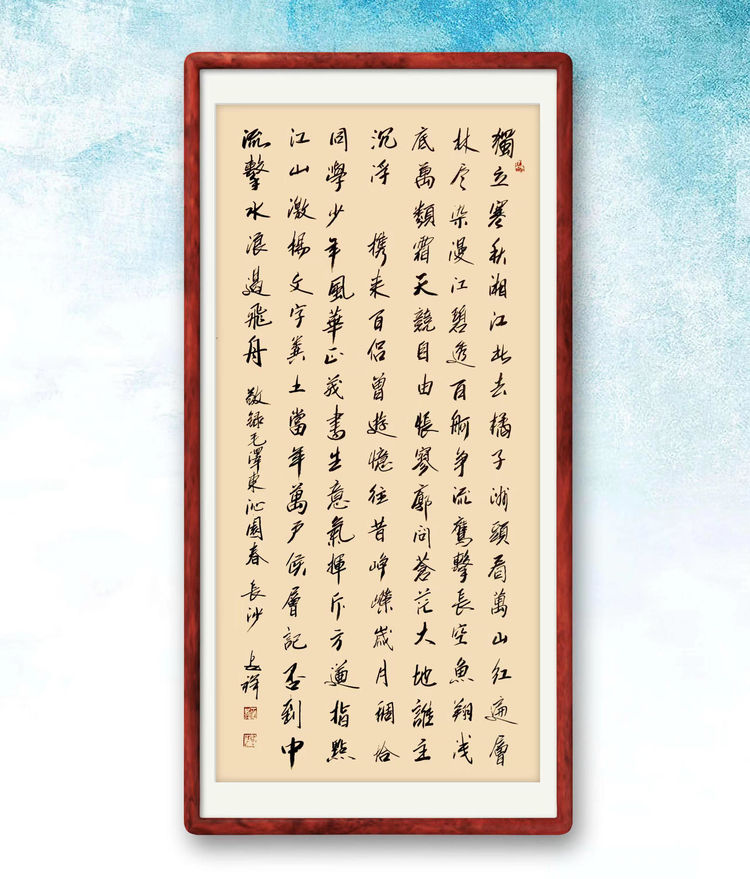 獨立寒秋湘江北去橘子洲頭看萬山紅遍層
林尽染漫江碧透百舸争流鷹擊長空魚翔浅
底萬類霜天競自由悵寥廓问蒼茫大地誰主
沉浮 携来百侣曾遊憶往昔峥嵘歲月稠恰
同學少年風華正茂書生意氣揮斥方遒指點
江山激揚文字粪土當年萬户侯層記否到中
流擊水浪遏飛舟 敬録毛澤東沁園春 長沙